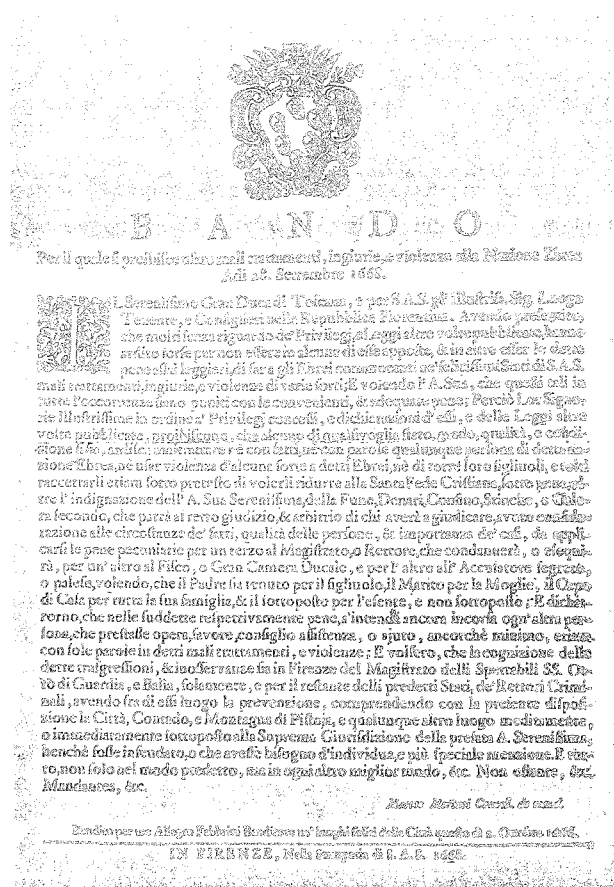 BANDO
Per il quale si proibisce altro mali trattamenti, ingiurie, e violenze alla Nazione Ebrea
Adi 28. Settembre 1668.
IL Serenissimo Gran Duca di Toscana, e per S.A.S. gl' Illustriss. Sig. Luogo
Tenente, e Consiglieri nella Repubblica Fiorentina. Avendo presentito,
che molti senza riguardo de' Privilegi, e Leggi altre volte pubblicate,
ardire forse per non essere in alcune di esse apposte, & in altre esser le dette
pene assai leggieri, di fare gli Ebrei commoranti ne' felicissimi Stati di S.A.S.
mali trattamenti, ingiurie, e violenze di varie sorti; E volendo l' A. Sua, che questi tali in
tutte l'occorrenze sieno puniti con le convenienti, & adequate pene; Perciò Lor Signo-
rie Illustrissime in ordine a' Privilegi concessi, e dichiarazioni d'essi, e delle Leggi altre
volte pubblicate, proibiscono, che alcuno di qualsivoglia stato, grado, qualità, e condi-
zione si sia, ardisca maltrattare nè con fatti, nè con parole qualunque persona di detta na-
zione Ebrea, nè usar violenza d'alcuna sorte a detti Ebrei, nè di torre loro figliuoli, e tolti
raccettarli etiam sotto pretesto di volerli ridurre alla Santa Fede Cristiana, sotto pena, ol-
tre l' indignazione dell' A. Sua Serenissima, della Fune, Denari, Confino, Stinche, o Gale-
ra secondo, che parrà al retto giudizio, & arbitrio di chi averà a giudicare, avuto conside-
razione alle circostanze de' fatti, qualità delle persone, & importanza de' casi, da appli-
carsi le pene pecuniarie per un terzo al Magistrato, o Rettore, che condannerà, o eseguì-
rà, per un' altro al Fisco, o Gran Camera Ducale, e per l' altro all' Accusatore segreto,
o palese, volendo, che il Padre sia tenuto per il figliuolo, il Marito per la Moglie, il Capo
di Casa per tutta la sua famiglia, & il sottoposto per l'esente, e non sottoposto; E dichia-
rorno, che nelle suddette respettivamente pene, s'intenda ancora incorsa ogn' altra per-
sona, che prestasse opera, favore, consiglio assistenza, o ajuto, ancorchè minimo,
con sole parole in detti mali trattamenti, e violenze; E volsero, che la cognizione delle
dette trasgressioni, & inosservanze sia in Firenze del Magistrato delli Spettabili SS. Ot-
to di Guardia, e Balia, solamente, e per il restante delli predetti Stati, de' Rettori Crimi-
nali, avendo fra di essi luogo la prevenzione, comprendendo con la presente disposi-
zione la Città, Contado, e Montagna di Pistoja, e qualunque altro luogo mediatamente,
o immediatamente sottoposto alla Suprema Giurisdizione della prefata A. Serenissima,
benchè fosse infeudato, o che avesse bisogno d'individua, e più speciale menzione. E tan-
to, non solo nel modo predetto, ma in ogni altro miglior modo, &c. Non ostante, &c.
Mandantes, &c.
Cancell. de mand.
Bandito per me Allegro Fabbrini Banditore ne' luoghi soliti della Città questo dì 2. Ottobre 1668.
IN FIRENZE, Nella Stamperia di S. A. S. 1668.